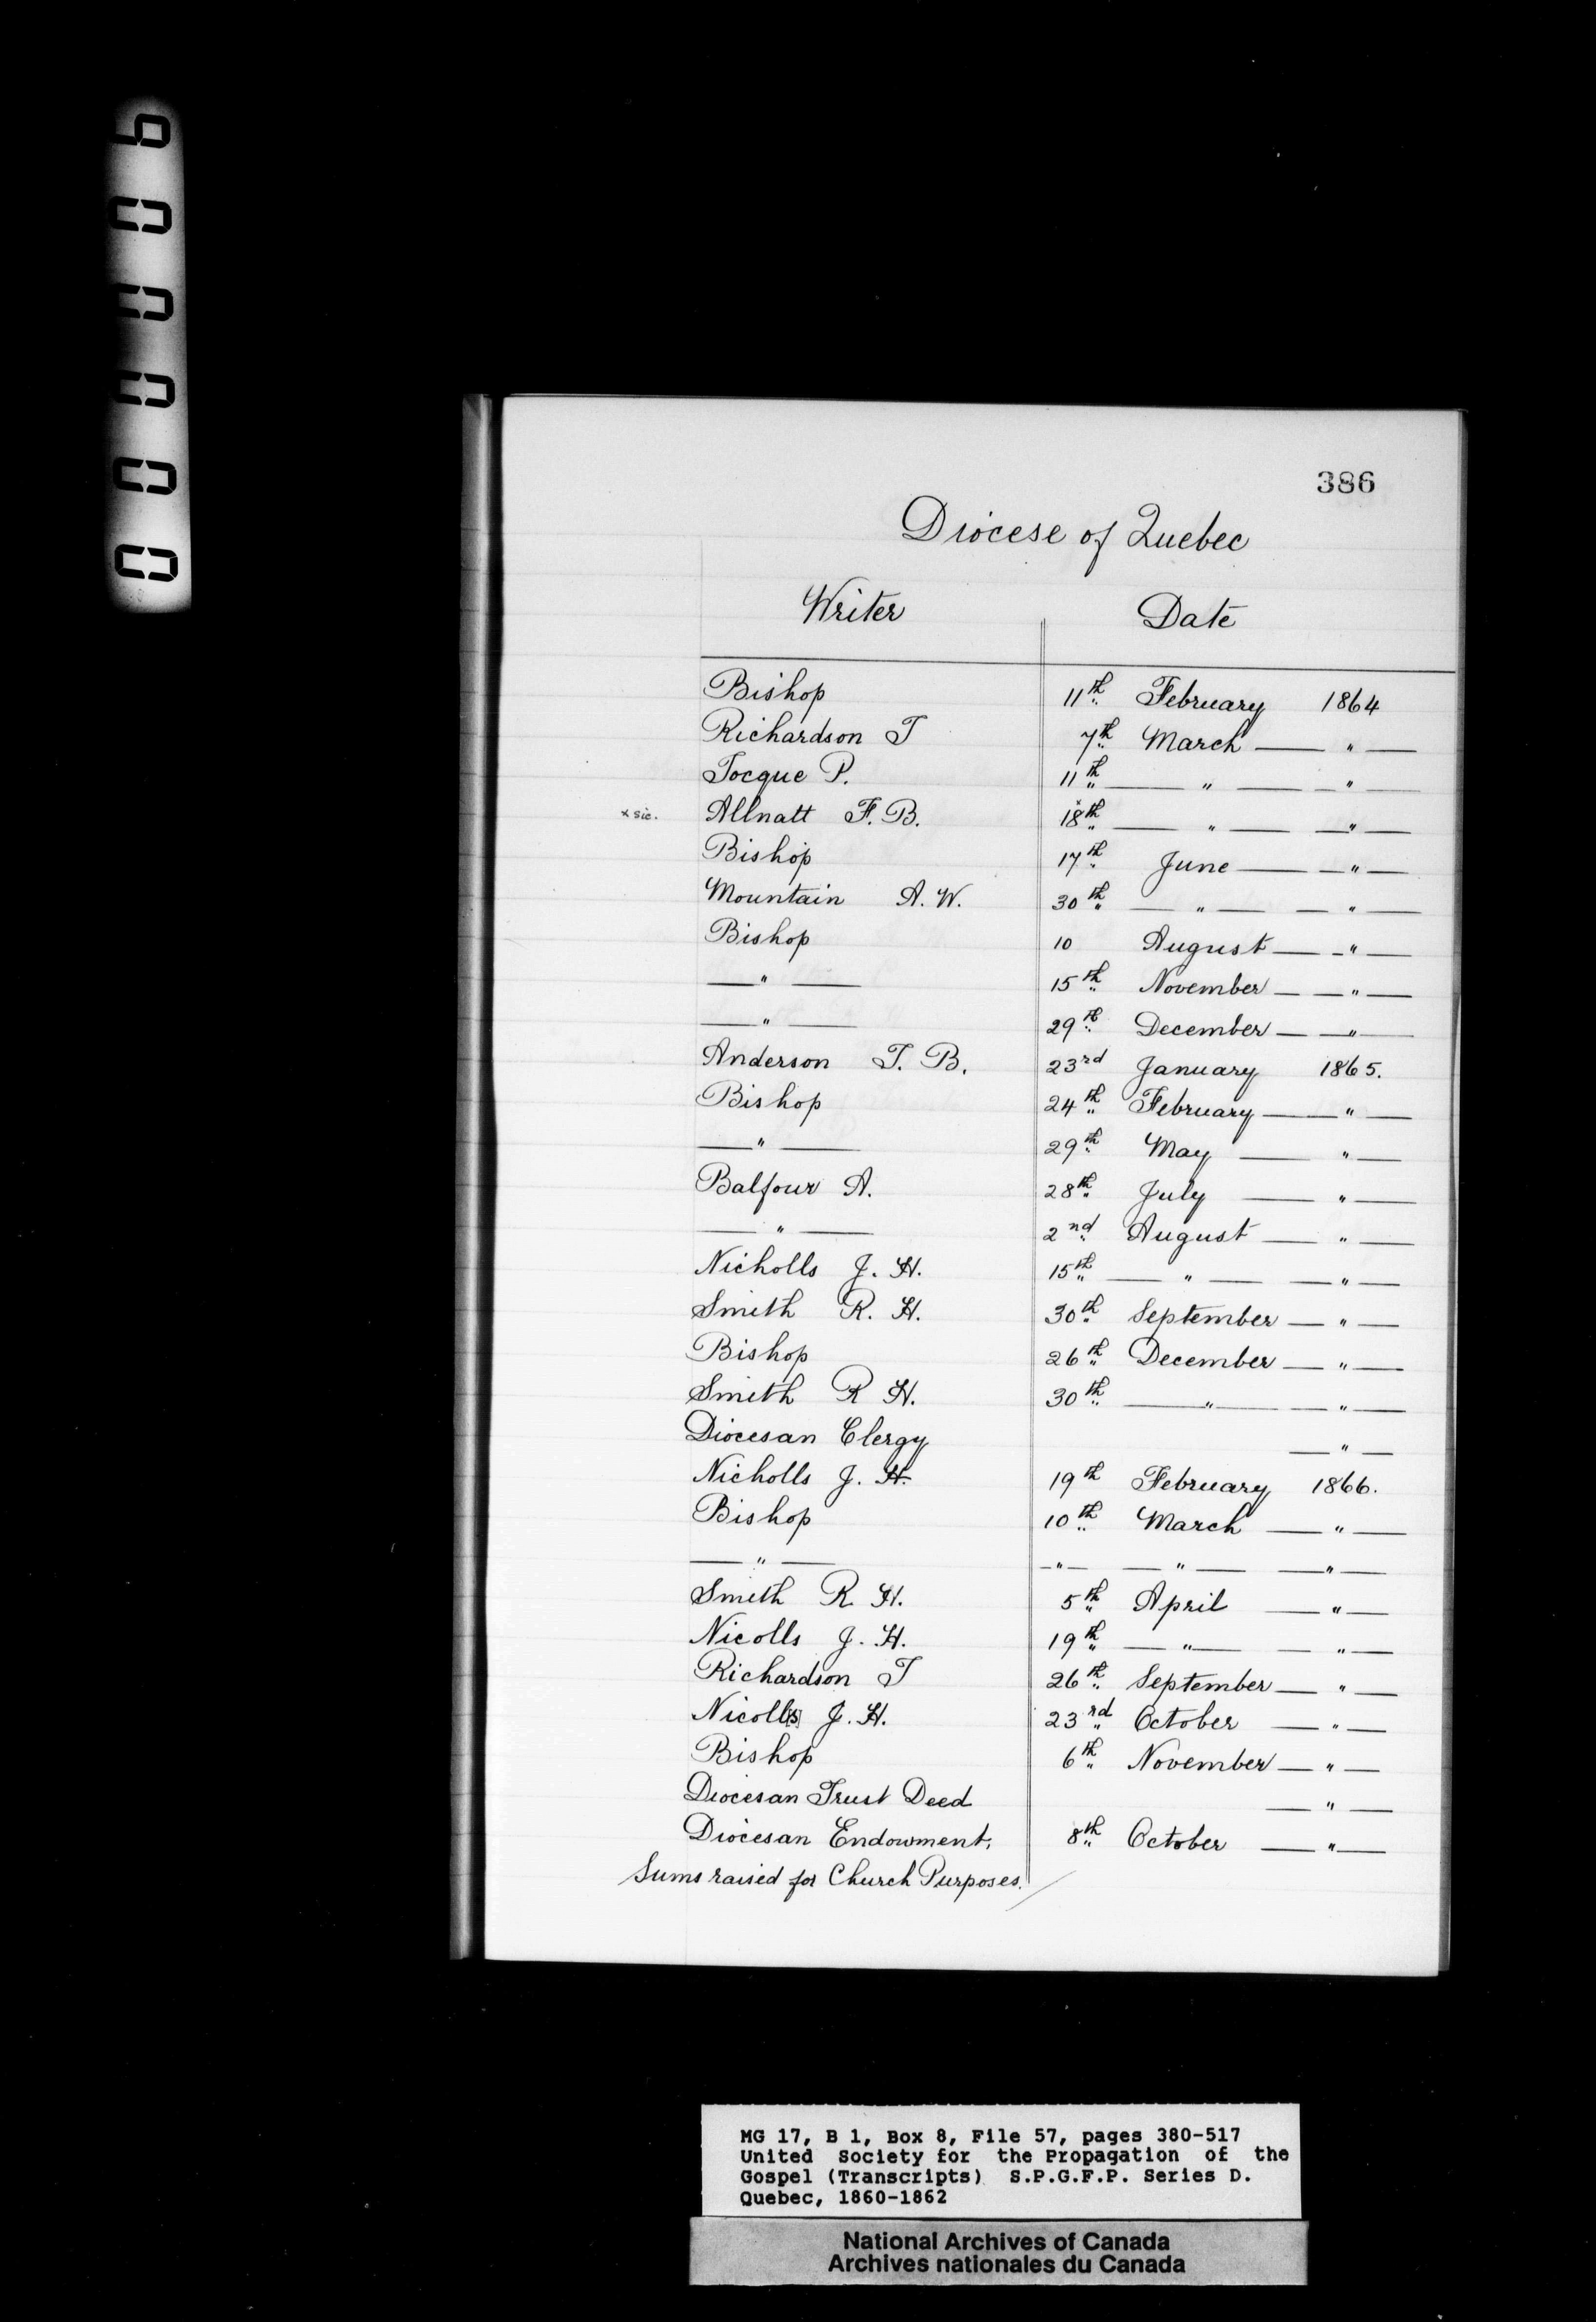 000009
386
Diocese of Quebec
Writer Date
Bishop 11th February 1864
Richardson T 7th March — " —
Tocque P. 11th — " — — " —
x sic. Allnatt F. B. 18th x — " — — " —
Bishop 17th June — " —
Mountain A. W. 30th — " — — " —
Bishop 10 August — " —
— " — 15th November — " —
— " — 29th December — " —
Anderson T. B. 23rd January 1865.
Bishop 24th February — " —
— " — 29th May — " —
Balfour A. 28th July — " —
— " — 2nd August — " —
Nicholls J. H. 15th — " — — " —
Smith R. H. 30th September — " —
Bishop 26th December — " —
Smith R H. 30th — " — — " —
Diocesan Clergy — " —
Nicholls J. H. 19th February 1866.
Bishop 10th March — " —
— " — — " — — " — — " —
Smith R H. 5th April — " —
Nicolls J. H. 19th — " — — " —
Richardson T 26th September — " —
Nicoll[s] J. H. 23rd October — " —
Bishop 6th November — " —
Diocesan Trust Deed — " —
Diocesan Endowment, 8th October — " —
Sums raised for Church Purposes.
MG 17, B 1, Box 8, File 57, pages 380-517
United Society for the Propagation of the
Gospel (Transcripts) S.P.G.F.P. Series D.
Quebec, 1860-1862
National Archives of Canada
Archives nationales du Canada